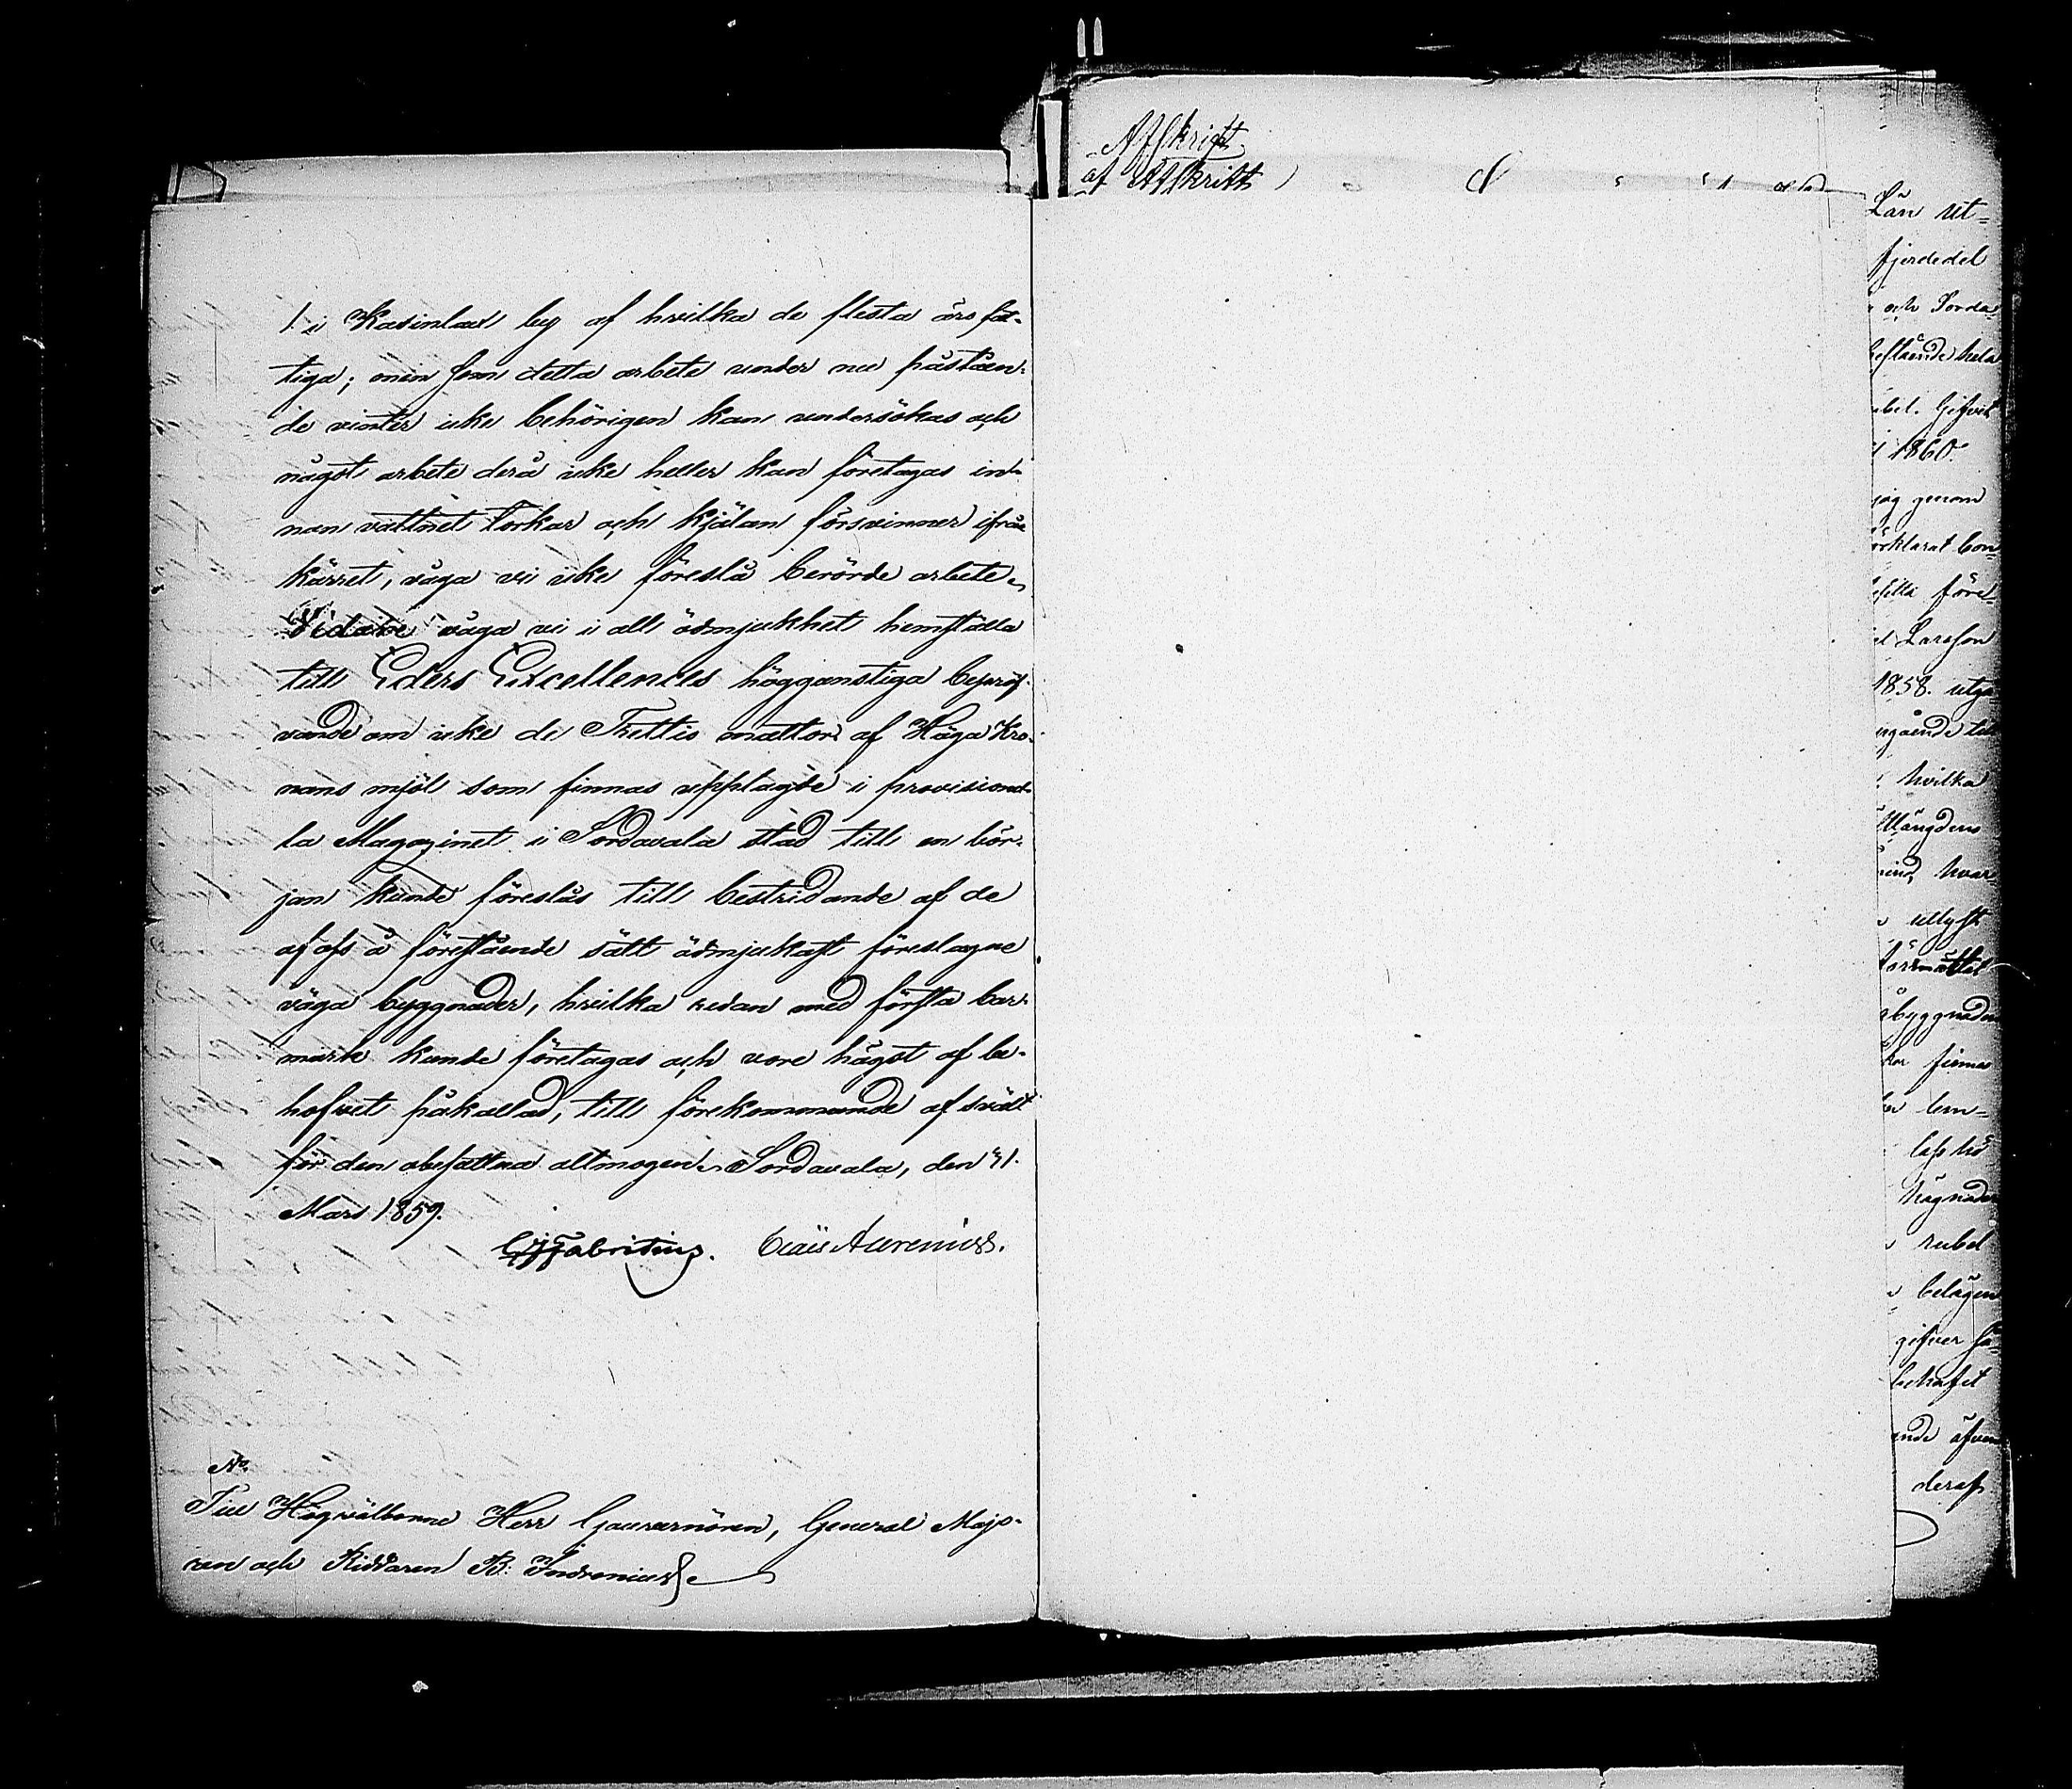 1. i Kasinlax by af hvilka de flesta äro fat-
tiga; men som detta arbete under nu påståen-
de vinter icke behörigen kan undersökas och
något arbete derå icke heller kan företagas in-
nan vattnet torkar och kjälan försvinner ifrån
kärret, våga vi icke föreslå berörde arbete.
Vidare våga vi i all ödmjukhet hemställa
till Eders Excellences höggunstiga bepröf-
vande om icke de Trettio mattor af Höga Kro-
nans mjöl som finnas upplagde i provisionel-
la Magazinet i Sordavala stad till en bör-
jan kunde föreslås till bestridande af de
af oss å förestående sätt ödmjukast föreslagne
väga byggnader, hvilka redan med första bar-
mark kunde företagas och vore högst af be-
hofvet påkallad, till förekommande af svält
för den obesuttna allmogen. Sordavala, den 31.
Mars 1859.
Fabritius. Claës Alrenius.
No.
Till Högvälborne Herr Gouvernören, General Majo-
ren och Riddaren B: Indrenius
Afskrift
af Afskrift
Län ut-
fjerdedel
och Sorda-
estående hela
ubel. Gifvit
1860.
jag genom
örklarat bon-
före-
Larsson
1858. utgå-
ngående till
hvilka
llängdens
hvar-
utlyst
byggnaden
finnes
lem-
hägnader
rubel
belägen
gifver
behofvet
ande äfven
deraf